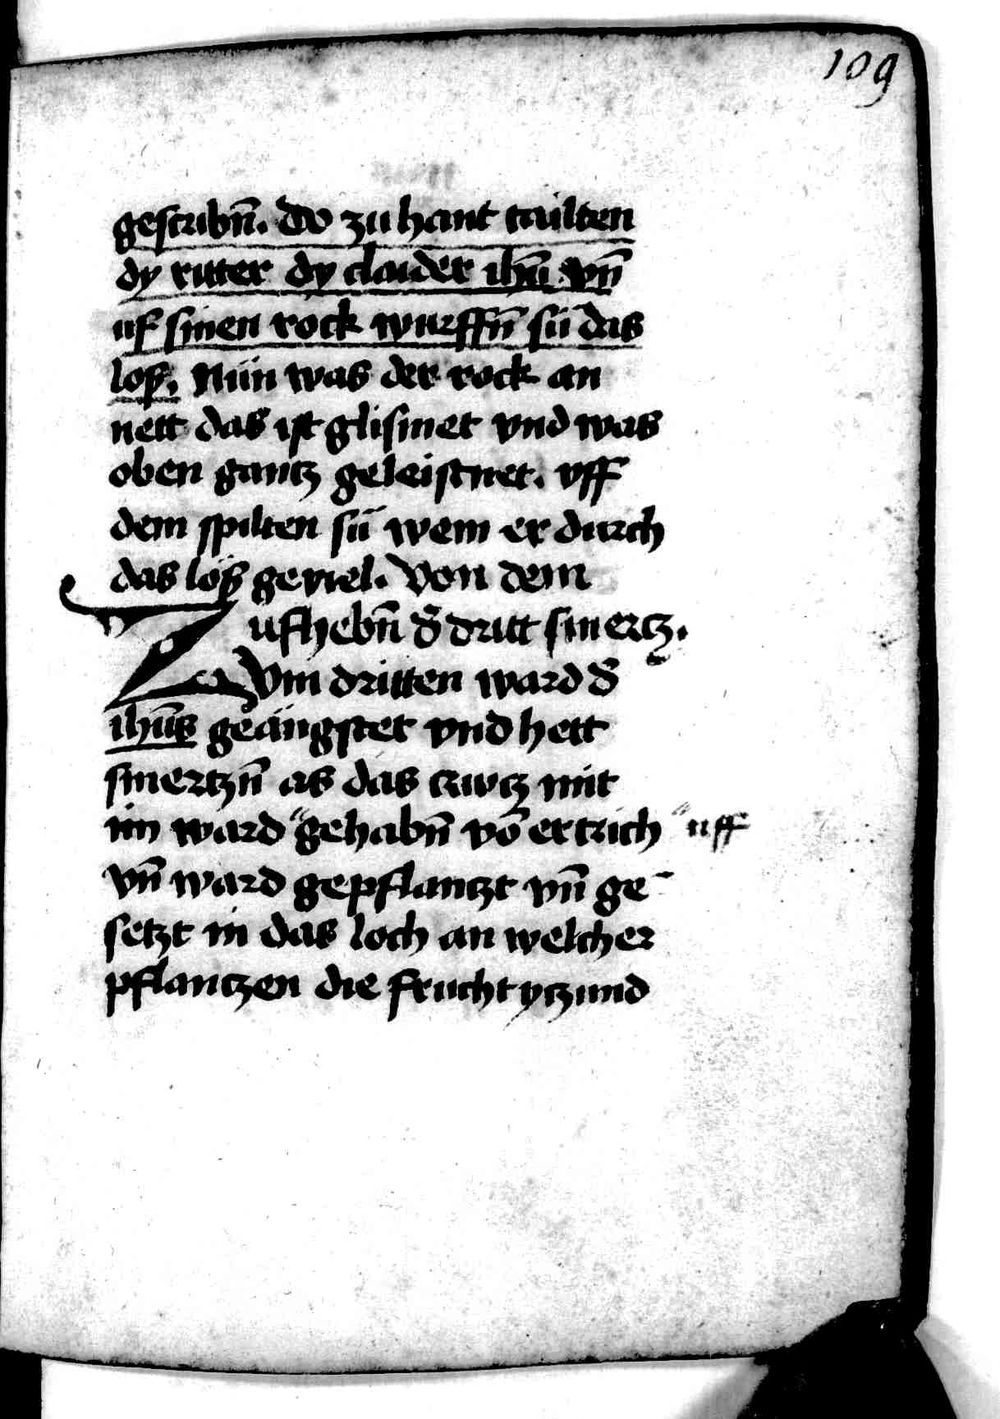 109
gescribn̄. do zu hant tailten
dy ritter dy claider ihū vn̄
uf sinen rock wurffn̄ sü das
loß. Nün was der rock an
nett das ist glismet vnd was
oben gantz geleistnet. vff
dem spilten sü wem er durch
das loß geviel. Von dem
ufhebn̄ d̄ dritt smertz.
Zum dritten ward d̄
ihūs geängstet vnd hett
smertzn̄ as das crütz mit
im ward "gehabn̄ vō ertrich "uff
vn̄ ward gepflantzt vn̄ ge
setzt in das loch an welcher
pflantzen die frucht ytzund